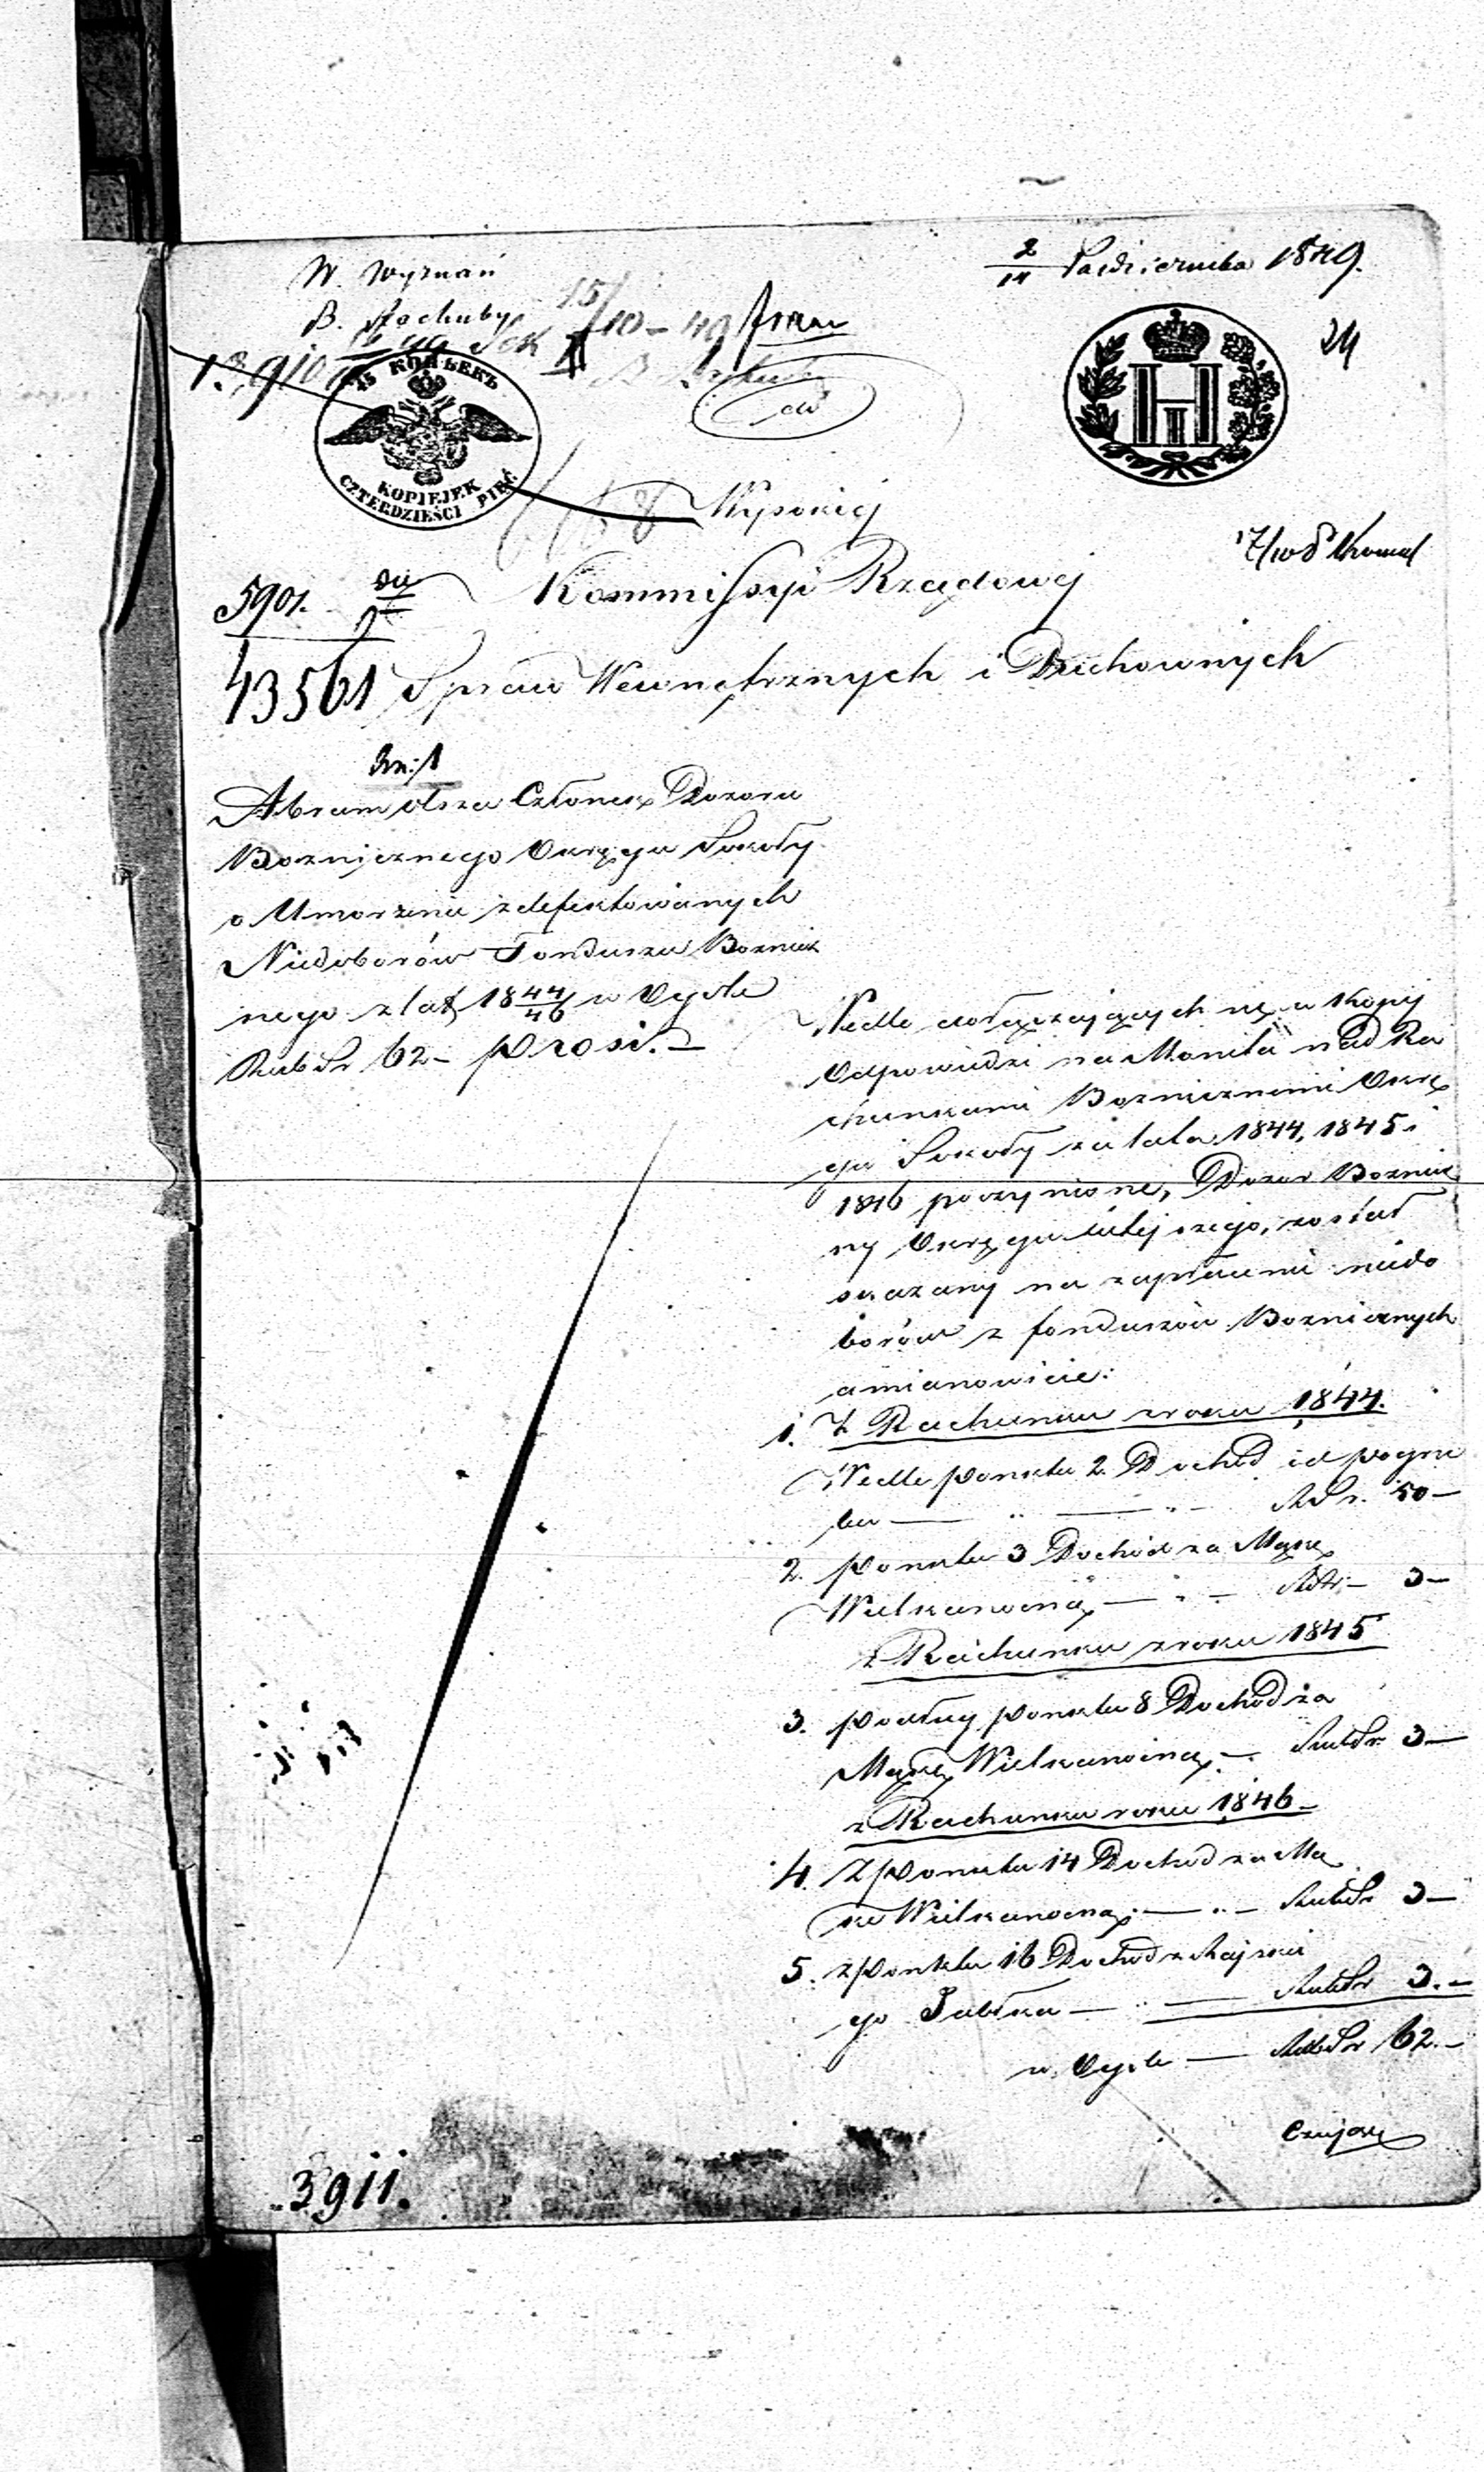 2/14 Październıka 1849.
W. Wyznań
B. Rachuby
15/10 – 49
24
45 КОПѢЕКЪ
KOPIEJEK
CZTERDZIEŚCI PIĘĆ
H II
Wysokiej
Kommissyi Rządowej
5901.
43561
Spraw Wewnętrznych i Duchownych
Abram Członek Dozoru
Bozniczego Okręgu Sokoły
o Umorzenie zdefektowanych
Niedoborów Fonduszu Boznicz
nego z lat 18 44/46 w Ogóle
RubSr 62 – prosi. –
Wedle dołączających się w kopij
Odpowiedzi na Monita nad Ra
chunkami Boznicznemi Okrę
gu Sokoły za lata 1844, 1845 i
1846 poczynione, Dozor Boznicz
ny Okręgu tutejszego, został
skazany na zapłacenie niedo
borów z funduszów Boznicznych
a mianowicie:
1. Z Rachunku z roku 1844.
Wedle Ponktu 2. Dochód od pogrze
bu — " — " — RSr. 50 –
2. Ponktu 3 Dochód za Mąkę
Wielkanocną — " — RSr – 3 –
z Rachunku z roku 1845
3. Podług Ponktu 8 Dochód za
Mąkę Wielkanocną – RubSr 3 –
z Rachunku roku 1846 –
4. Z Ponktu 14 Dochód za Mą
kę Wielkanocną — " – RubSr 3 –
5. z Ponktu 16 Dochód z Rajskie
go Jabłka — " — RubSr 3. –
w Ogóle — RubSr 62. –
3911.